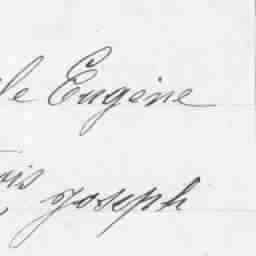 le Eugène
ois Joseph